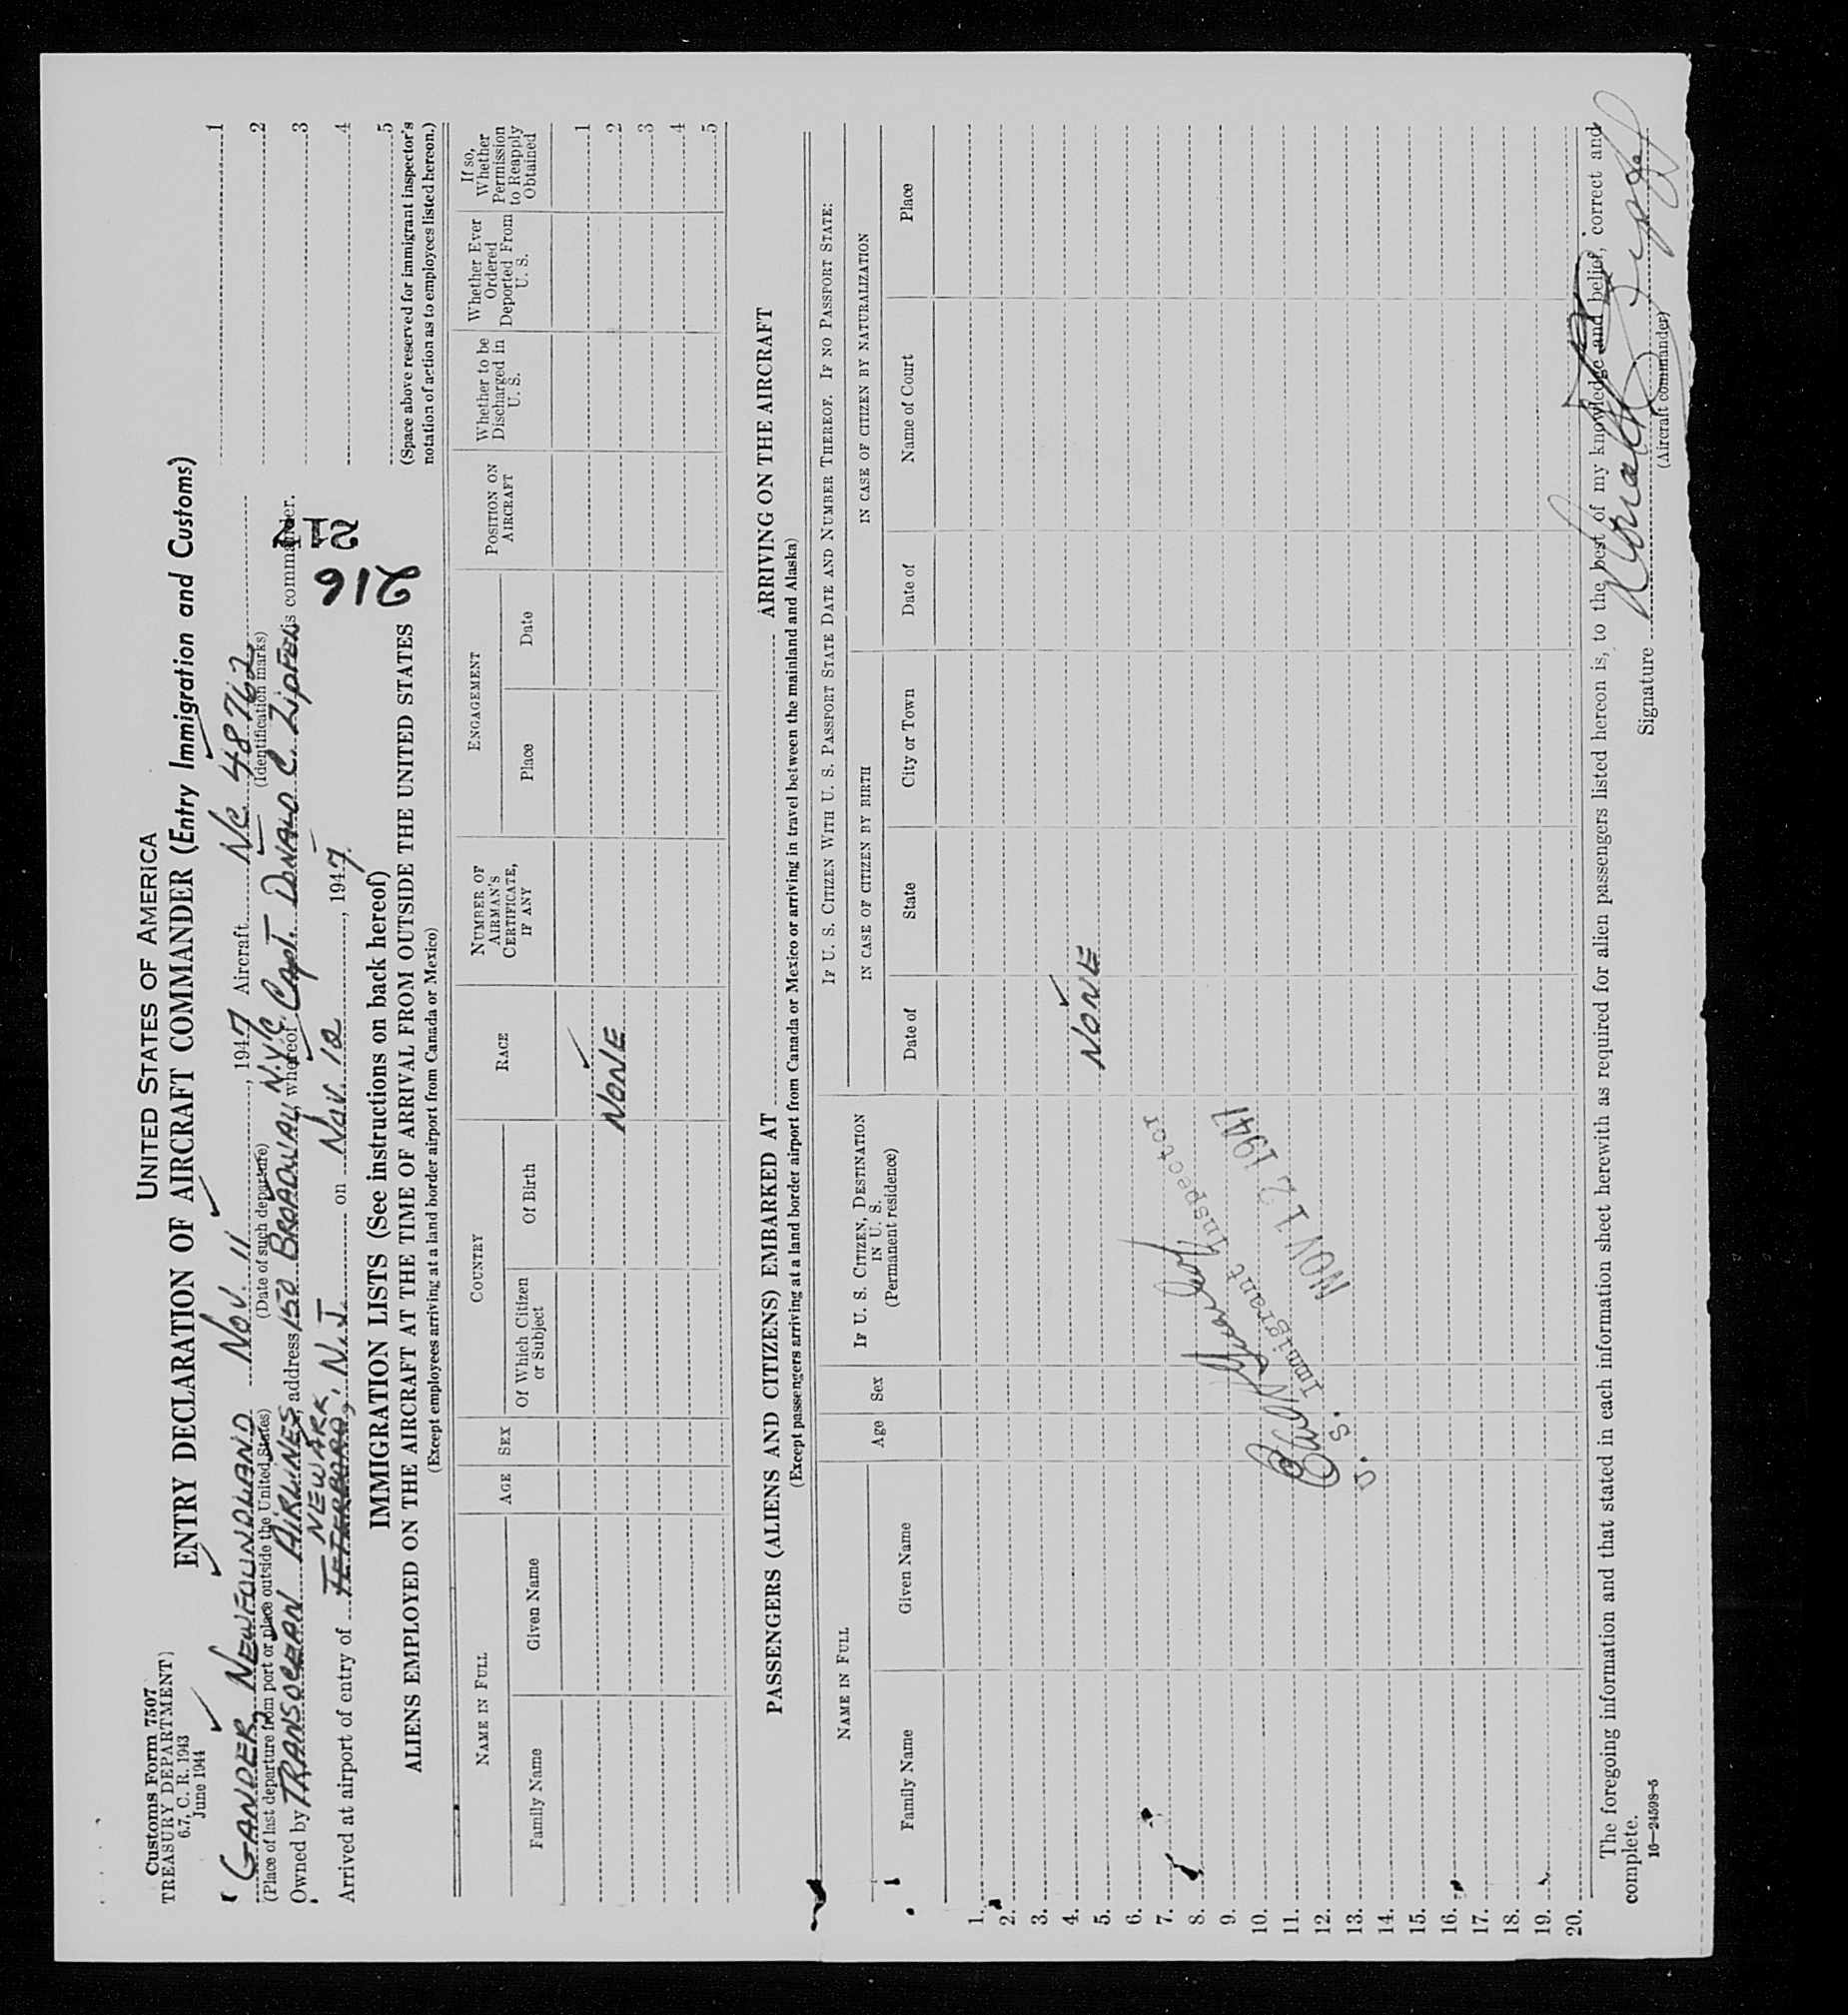 Customs Form 7507
TREASURY DEPARTMENT
6.7, C. R. 1943
June 1944
UNITED STATES OF AMERICA
ENTRY DECLARATION OF AIRCRAFT COMMANDER (Entry Immigration and Customs)
GANDER, NEWFOUNDLAND Nov. 11, 1947 Aircraft NC 48762
(Place of last departure from port or place outside the United States) (Date of such departure) (Identification marks)
Owned by TRANSOCEAN AIRLINES, address 150 BROADWAY N.Y.C., whereof Capt. DONALD C. is commander.
NEWARK
Arrived at airport of entry of TETERBORO, N.J. on Nov. 12, 1947.
916
1
2
3
4
5
(Space above reserved for immigrant inspector's
notation of action as to employees listed hereon.)
IMMIGRATION LISTS (See instructions on back hereof)
ALIENS EMPLOYED ON THE AIRCRAFT AT THE TIME OF ARRIVAL FROM OUTSIDE THE UNITED STATES
(Except employees arriving at a land border airport from Canada or Mexico)
NAME IN FULL
Family Name
Given Name
AGE
SEX
COUNTRY
Of Which Citizen
or Subject
Of Birth
RACE
NUMBER OF
AIRMAN'S
CERTIFICATE,
IF ANY
ENGAGEMENT
Place
Date
POSITION ON
AIRCRAFT
Whether to be
Discharged in
U. S.
Whether Ever
Ordered
Deported From
U. S.
If so,
Whether
Permission
to Reapply
Obtained
1
NONE 2
3
4
5
PASSENGERS (ALIENS AND CITIZENS) EMBARKED AT ARRIVING ON THE AIRCRAFT
(Except passengers arriving at a land border airport from Canada or Mexico or arriving in travel between the mainland and Alaska)
NAME IN FULL
Family Name
Given Name
Age
Sex
IF U. S. CITIZEN, DESTINATION
IN U. S.
(Permanent residence)
IF U. S. CITIZEN WITH U. S. PASSPORT STATE DATE AND NUMBER THEREOF. IF NO PASSPORT STATE:
IN CASE OF CITIZEN BY BIRTH
Date of
State
City or Town
IN CASE OF CITIZEN BY NATURALIZATION
Date of
Name of Court
Place
1.
2.
3.
4.
5. NONE
6.
7.
8.
9.
10.
11.
12.
13.
14.
15.
16.
17.
18.
19.
20.
U. S. Immigrant Inspector
NOV 12 1947
The foregoing information and that stated in each information sheet herewith as required for alien passengers listed hereon is, to the best of my knowledge and belief, correct and
complete.
Signature Donald
(Aircraft commander)
16—24598-5